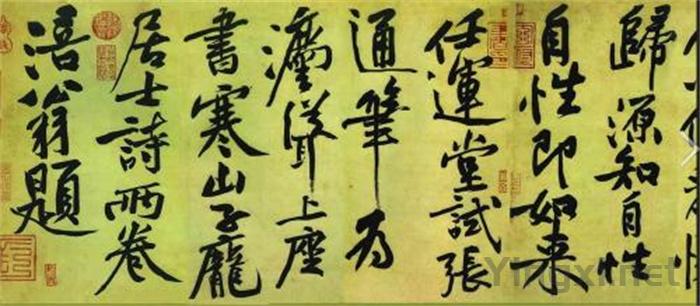 歸源知自性
自性即如来
任運堂試張
通筆为
灋聳上座
書寒山子龐
居士詩兩卷
涪翁題